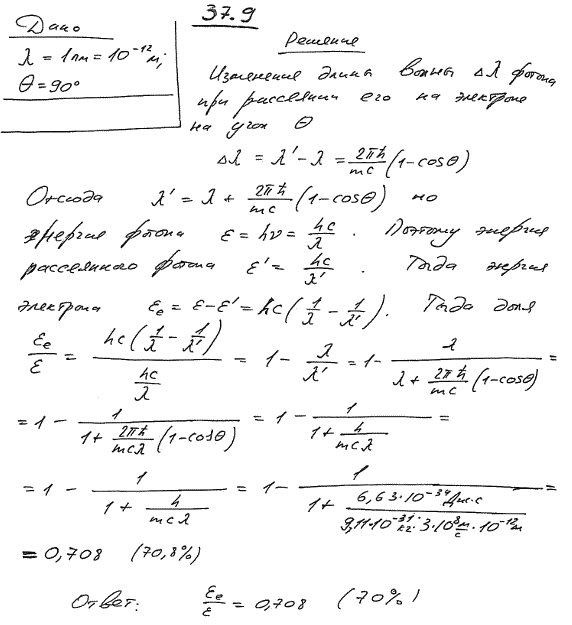 37.9
Дано
λ = 1пм = 10⁻¹² м;
θ = 90°
Решение
Изменение длина волны Δλ фотона
при рассеянии его на электроне
на угол θ
Δλ = λ' - λ = 2πħ/mc (1-cosθ)
Отсюда λ' = λ + 2πħ/mc (1-cosθ) но
энергия фотона ε = hν = hc/λ. Поэтому энергия
рассеянного фотона ε' = hc/λ'. Тогда энергия
электрона εe = ε-ε' = hc(1/λ - 1/λ'). Тогда доля
εe/ε = hc(1/λ - 1/λ') / (hc/λ) = 1 - λ/λ' = 1 - λ/(λ + 2πħ/mc (1-cosθ)) =
= 1 - 1/(1 + 2πħ/mcλ (1-cosθ)) = 1 - 1/(1 + h/mcλ) =
= 1 - 1/(1 + h/mcλ) = 1 - 1/(1 + 6,63·10⁻³⁴ Дж·с/(9,11·10⁻³¹ кг·3·10⁸ м/с·10⁻¹² м)) =
= 0,708 (70,8%)
Ответ: εe/ε = 0,708 (70%)